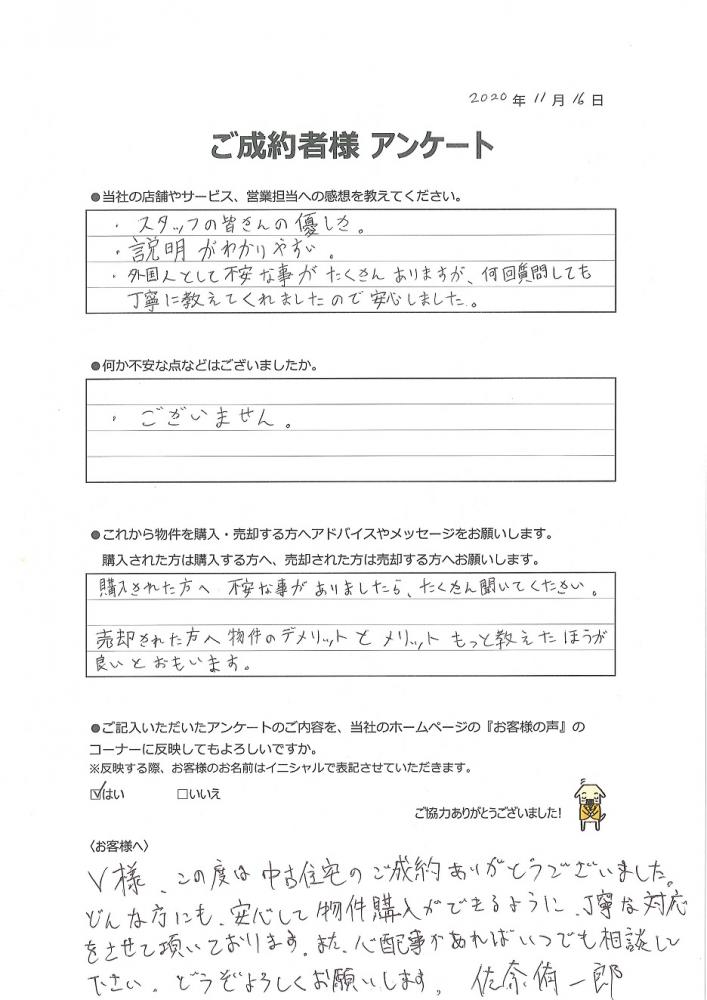 2020年 11月 16日
ご成約者様 アンケート
●当社の店舗やサービス、営業担当への感想を教えてください。
・スタッフの皆さんの優しさ。
・説明がわかりやすい。
・外国人として不安な事がたくさんありますが、何回質問しても
丁寧に教えてくれましたので安心しました。
●何か不安な点などはございましたか。
・ございません。
●これから物件を購入・売却する方へアドバイスやメッセージをお願いします。
購入された方は購入する方へ、売却された方は売却する方へお願いします。
購入された方へ 不安な事がありましたら、たくさん聞いてください。
売却された方へ 物件のデメリットとメリットもっと教えたほうが
良いとおもいます。
●ご記入いただいたアンケートのご内容を、当社のホームページの『お客様の声』の
コーナーに反映してもよろしいですか。
※反映する際、お客様のお名前はイニシャルで表記させていただきます。
☑はい □いいえ
ご協力ありがとうございました!
〈お客様へ〉
V様、この度は中古住宅のご成約ありがとうございました。
どんな方にも、安心して物件購入ができるように、丁寧な対応
をさせて頂いております。また、心配事があればいつでも相談して
下さい。どうぞよろしくお願いします。 佐奈 一郎